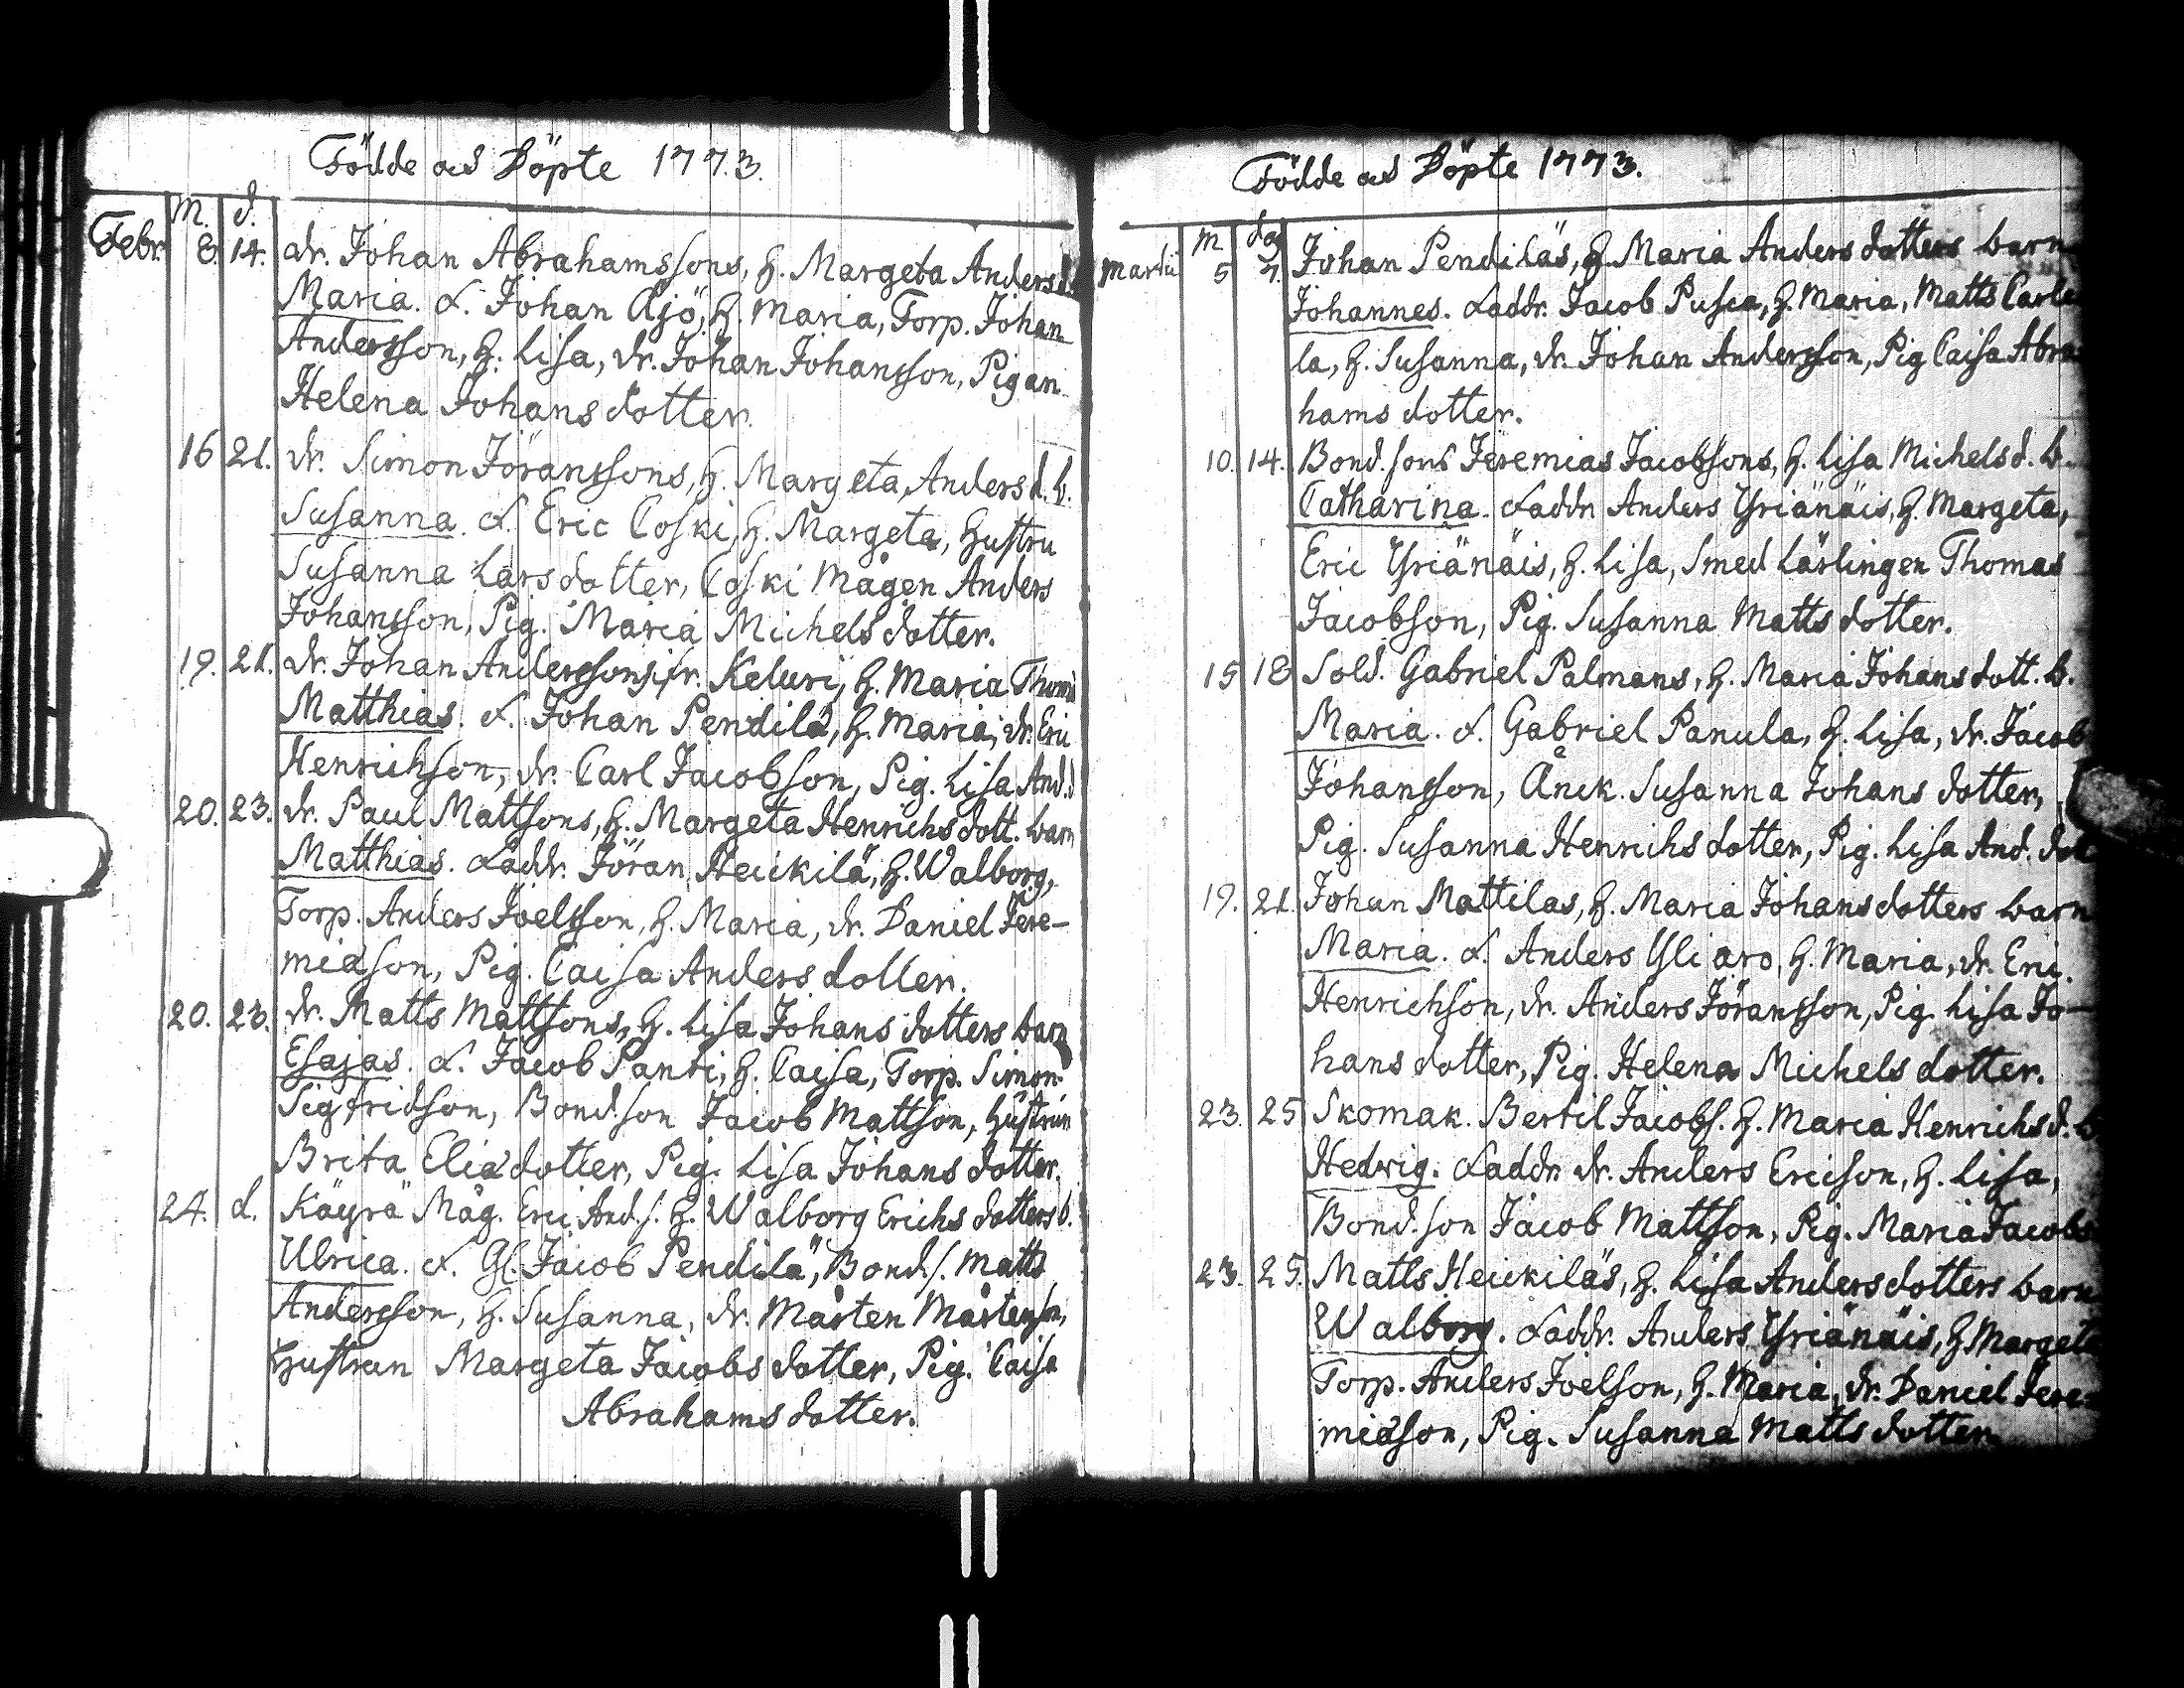 Födde och Döpte 1773.
m. d.
Febr. 8. 14. dr. Johan Abrahamssons, H. Margeta Anders d.
Maria. f. Johan Äjö, H. Maria, Torp. Johan
Andersson, H. Lisa, dr. Johan Johansson, Pigan
Helena Johans dotter.
16 21. dr. Simon Jöranssons, H. Margeta Anders d. b.
Susanna. f. Eric Coski, H. Margeta, Hustru
Susanna Lars dotter, Coski Mågen Anders
Johansson, Pig. Maria Michels dotter.
19. 21. dr. Johan Anderssons, fr. Keluri, H. Maria Thoms
Matthias. f. Johan Pendilä, H. Maria, dr. Eric
Henrichson, dr. Carl Jacobson, Pig. Lisa And. d
20. 23. dr. Paul Mattsons, H. Margeta Henrichs dott. barn
Matthias. Faddr. Jöran Heickilä, H. Walborg,
Torp. Anders Joelsson, H. Maria, dr. Daniel Jere-
miasson, Pig. Caisa Anders dotter.
20. 23. dr. Matts Mattsons, H. Lisa Johans dotters barn
Esajas. f. Jacob Panti, H. Caisa, Torp. Simon
Sigfridson, Bond. son Jacob Mattson, Hustrun
Brita Elia dotter, Pig. Lisa Johans dotter.
24. d. Käyrä Måg. Eric And. s. H. Walborg Erichs dotters b.
Ulrica. f. Gl. Jacob Pendilä, Bond. s. Matts
Andersson, H. Susanna, dr. Mårten Mårtenson,
Hustrun Margeta Jacobs dotter, Pig. Caisa
Abrahams dotter.
Födde och Döpte 1773.
m dag
Martii 5 7. Johan Pendiläs, H. Maria Anders dotters barn
Johannes. Faddr. Jacob Pusca, H. Maria, Matts Carle
la, H. Susanna, dr. Johan Andersson, Pig Caisa Abra
hams dotter.
10. 14. Bond. sons Jeremias Jacobsons, H. Lisa Michels d. b.
Catharina. Faddr. Anders Yriänäis, H. Margeta,
Eric Yriänäis, H. Lisa, Smed Lärlingen Thomas
Jacobson, Pig. Susanna Matts dotter.
15 18 Sold. Gabriel Palmans, H. Maria Johans dott. b.
Maria. f. Gabriel Panula, H. Lisa, dr. Jacob
Johansson, Änck. Susanna Johans dotter,
Pig. Susanna Henrichs dotter, Pig. Lisa And. dot
19. 21. Johan Mattilas, H. Maria Johans dotters barn
Maria. f. Anders Yli aro, H. Maria, dr. Eric.
Henrichson, dr. Anders Jöransson, Pig. Lisa Jo-
hans dotter, Pig. Helena Michels dotter.
23. 25 Skomak. Bertil Jacobs. H. Maria Henrichs d. b
Hedwig. Faddr. dr. Anders Ericson, H. Lisa,
Bond. son Jacob Mattson, Pig. Maria Jacobs
23. 25. Matts Heickiläs, H. Lisa Anders dotters barn
Walborg. Faddr. Anders Yriänäis, H. Margeta
Torp. Anders Joelson, H. Maria, dr. Daniel Jere-
miasson, Pig. Susanna Matts dotter